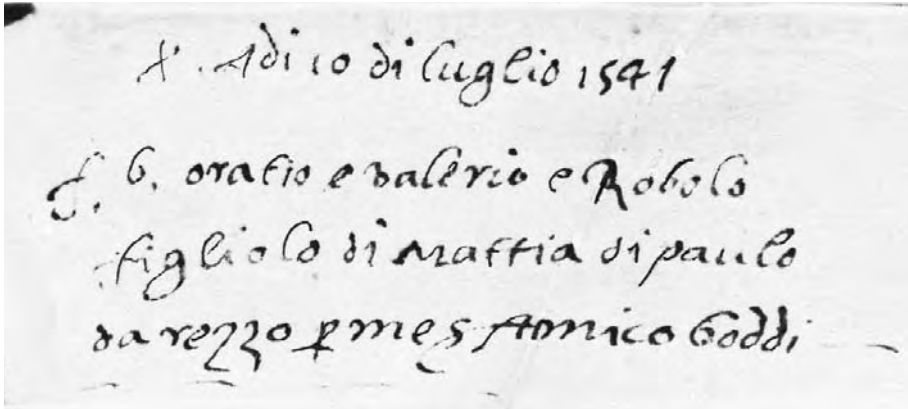 X. Adi 10 di luglio 1541
f. b. oratio e valerio e Robolo
figliolo di Mattia di paulo
da rezzo p mes Amico boddi